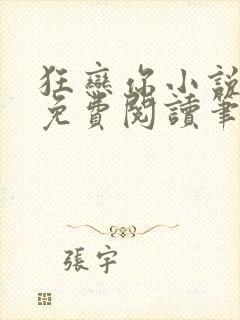 狂戀你小說
免費閱讀筆
張宇